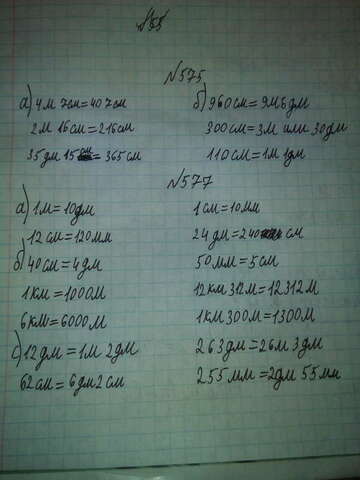 №575
а) 4м 7см=407см
2м 16см=216см
35дм 15см=365см
б) 960см=9м6дм
300см=3м или 30дм
110см=1м 1дм
№577
а) 1м=10дм
12см=120мм
б) 40см=4дм
1км=1000м
6км=6000м
с) 12дм=1м 2дм
62см=6дм2см
1см=10мм
24дм=240см
50мм=5см
12км 312м=12312м
1км 300м=1300м
263дм=26м 3дм
255мм=2дм 55мм